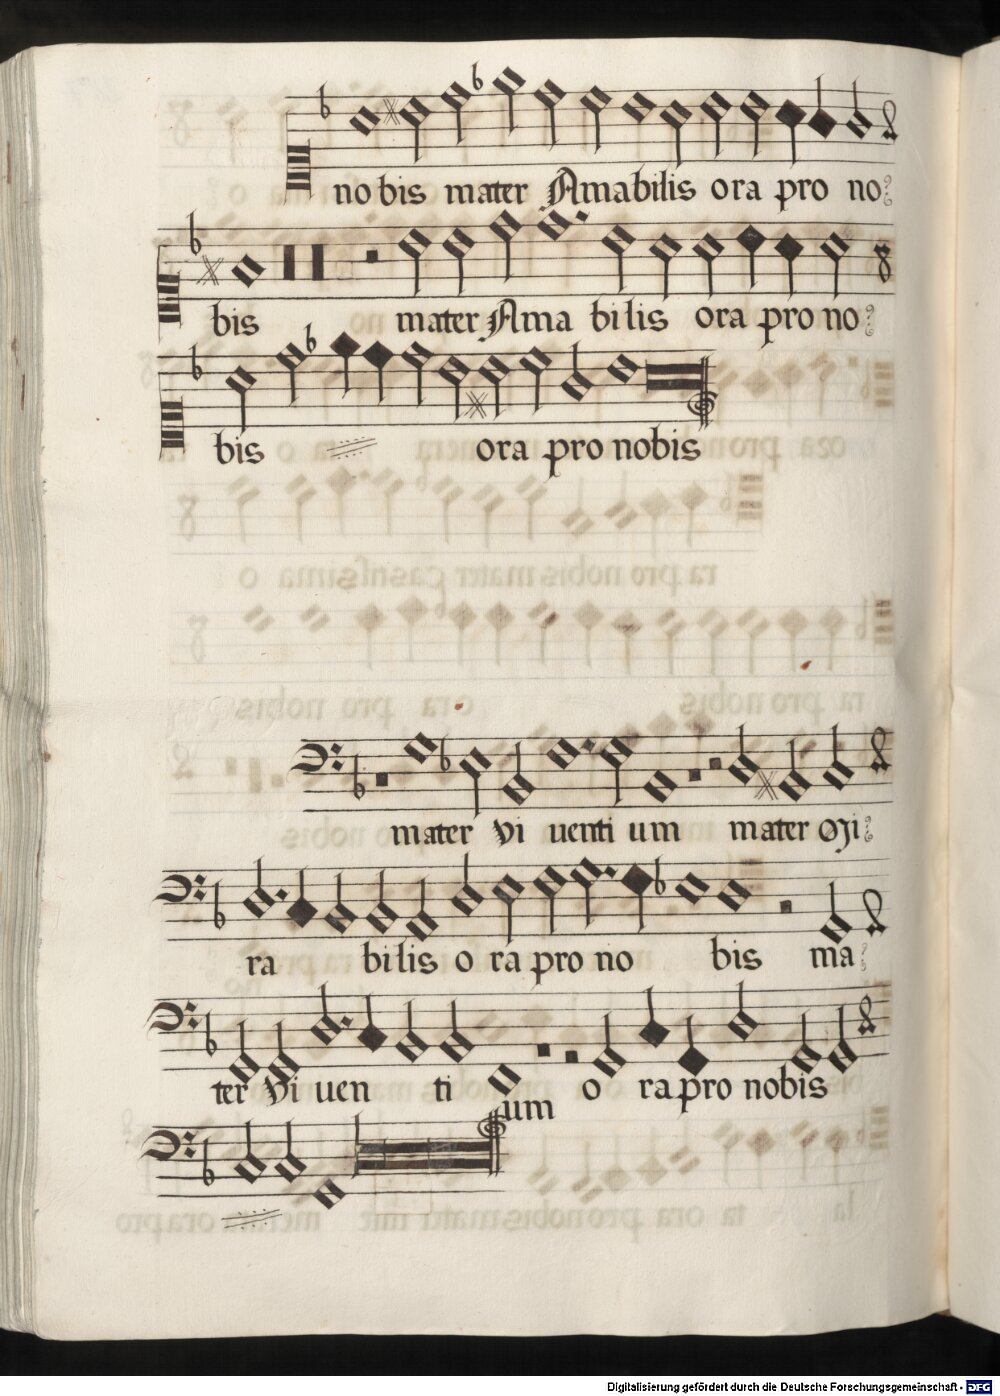 no bis mater Amabilis ora pro no
bis mater Ama bilis ora pro no
bis ora pro nobis
mater Vi uenti um mater Mi
ra bilis o ra pro no bis ma
ter Vi uen ti um o ra pro nobis
Digitalisierung gefördert durch die Deutsche Forschungsgemeinschaft - DFG